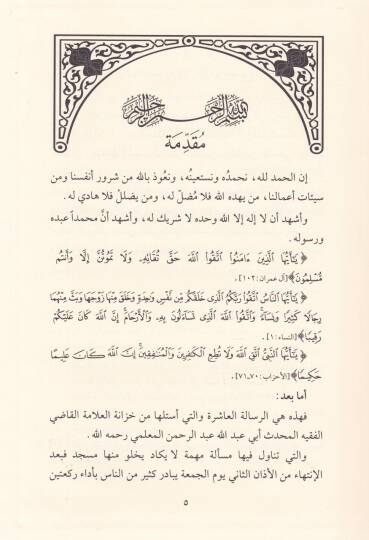 بسم الله الرحمن الرحيم
مُقَدِّمَة
إن الحمد لله، نحمدُه ونستعينُه، ونعُوذ بالله من شرور أنفسنا ومن
سيئات أعمالنا، من يهده الله فلا مُضلّ له، ومن يضللْ فلا هادي له.
وأشهد أن لا إله إلا الله وحده لا شريك له، وأشهد أنَّ محمداً عبده
ورسوله.
﴿ يَٰٓأَيُّهَا ٱلَّذِينَ ءَامَنُوا۟ ٱتَّقُوا۟ ٱللَّهَ حَقَّ تُقَاتِهِۦ وَلَا تَمُوتُنَّ إِلَّا وَأَنتُم
مُّسْلِمُونَ ﴾[آل عمران: ١٠٢].
﴿ يَٰٓأَيُّهَا ٱلنَّاسُ ٱتَّقُوا۟ رَبَّكُمُ ٱلَّذِى خَلَقَكُم مِّن نَّفْسٍ وَٰحِدَةٍ وَخَلَقَ مِنْهَا زَوْجَهَا وَبَثَّ مِنْهُمَا
رِجَالًا كَثِيرًا وَنِسَآءً ۚ وَٱتَّقُوا۟ ٱللَّهَ ٱلَّذِى تَسَآءَلُونَ بِهِۦ وَٱلْأَرْحَامَ ۚ إِنَّ ٱللَّهَ كَانَ عَلَيْكُمْ
رَقِيبًا ﴾[النساء: ١].
﴿ يَٰٓأَيُّهَا ٱلنَّبِىُّ ٱتَّقِ ٱللَّهَ وَلَا تُطِعِ ٱلْكَٰفِرِينَ وَٱلْمُنَٰفِقِينَ ۗ إِنَّ ٱللَّهَ كَانَ عَلِيمًا
حَكِيمًا ﴾[الأحزاب: ٧٠ـ٧١].
أما بعد:
فهذه هي الرسالة العاشرة والتي أستلها من خزانة العلامة القاضي
الفقيه المحدث أبي عبد الله عبد الرحمن المعلمي رحمه الله.
والتي تناول فيها مسألة مهمة لا يكاد يخلو منها مسجد فبعد
الإنتهاء من الأذان الثاني يوم الجمعة يبادر كثير من الناس بأداء ركعتين
٥